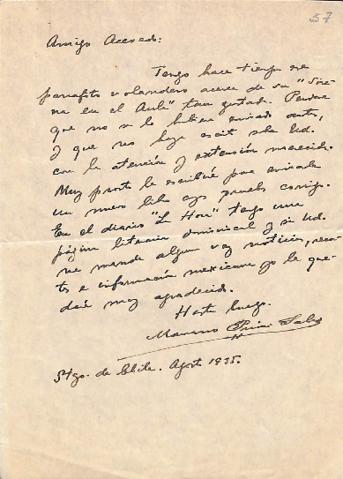 57
Amigo Acevedo:
Tengo hace tiempo ese
parrafito volandero acerca de su "Sire-
na en el Aula" tan gustado. Perdone
que no se lo hubiera enviado antes,
y que no haya escrito sobre Ud.
con la atención y extensión merecida.
Muy pronto le escribiré para enviarle
un nuevo libro cuyas pruebas corrijo.
En el diario "La Hora" tengo una
página literaria dominical y si Ud.
me manda alguna vez noticias, recor-
tes e información mexicana yo le que-
daré muy agradecido.
Hasta luego.
Mariano Picón Salas
Stgo. de Chile. Agosto 1935.